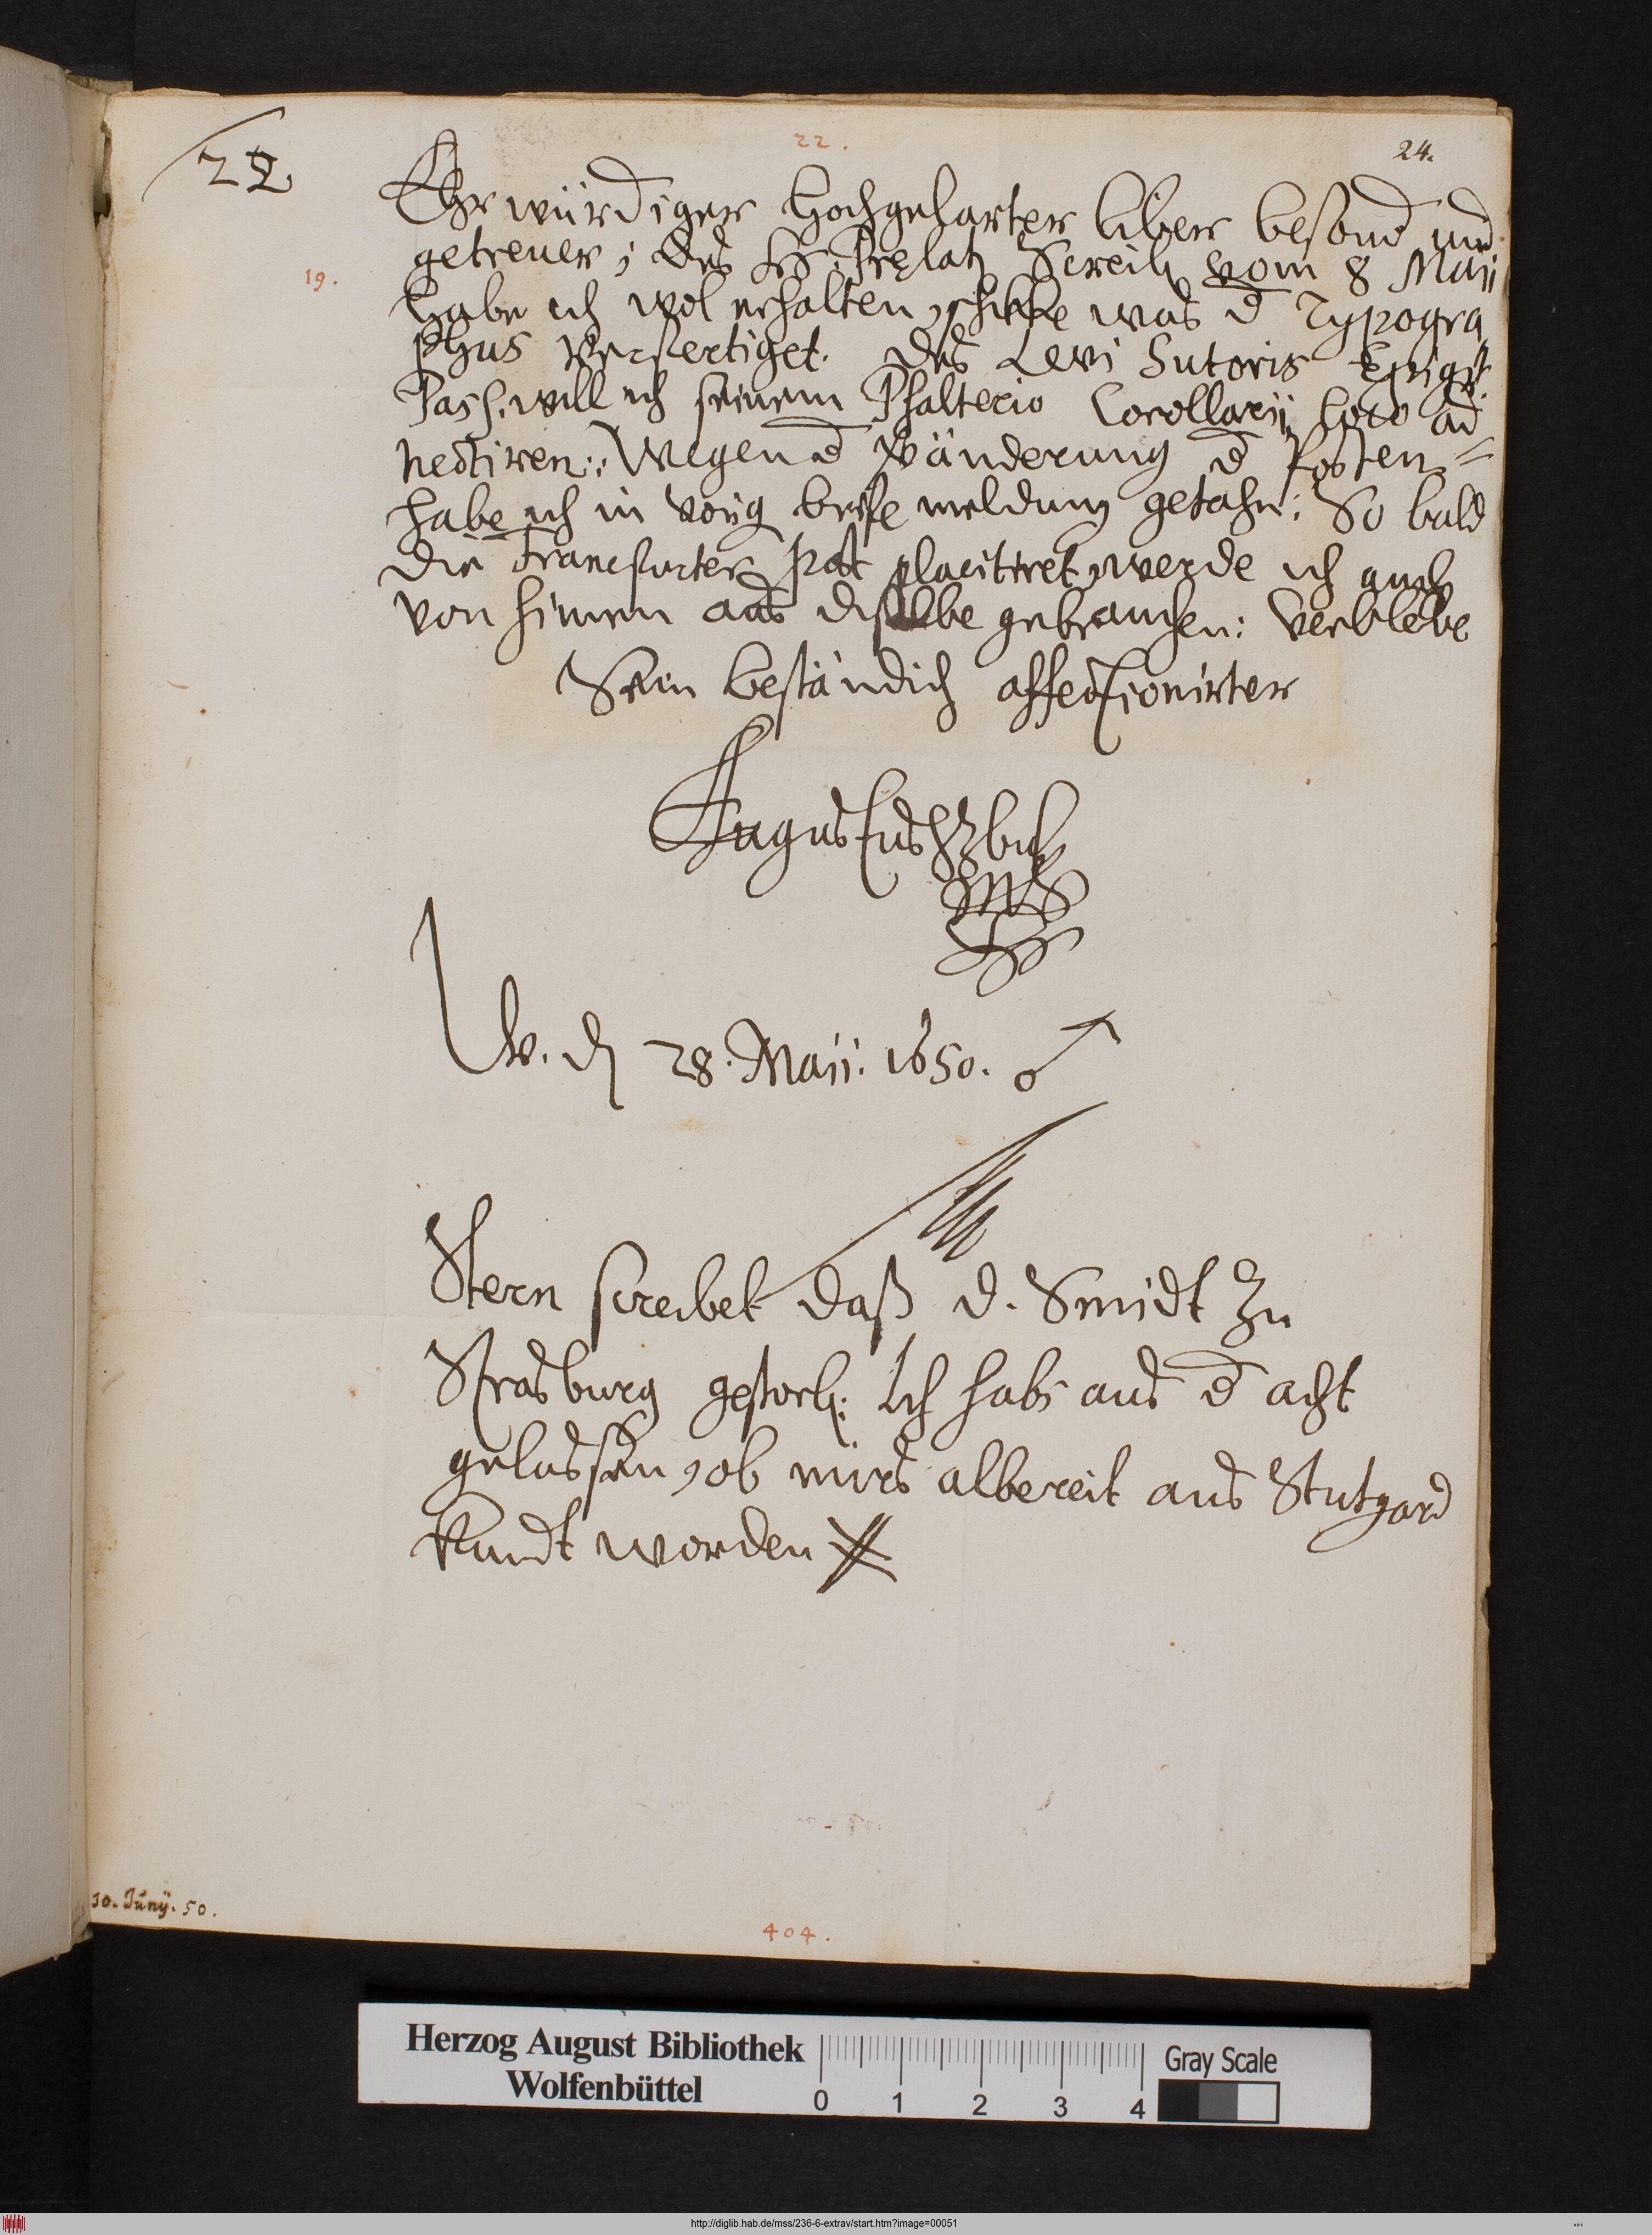 22
22.
24.
19.
Ehrwürdiger Hochgelarter liber besond und
getreuer; Des Hr: Pręlatȝ Screib vom 8 Maij
habe ich wol erhalten, schikke was d Typogra
phus verfertiget. Des Levi Sutoris Epigr
Pasch. will ich seinem Psalterio Corollarij loco ad
nectiren: Wegen d Vränderung d Posten
habe ich in vorig brife meldung getahn: So bald
die Francfurter post placittret, werde ich auch
von hinnen aus diselbe gebrauchen: Verblebe
Sein beständich affectionirter
Augustus HZbuL
mp
W. dn 28. Maij. 1650. ♂
Stern screibet daß D. Smidt zu
Strasburg gestorb: Ich habs aus d acht
gelassen, ob mirs albereit aus Stutgard
kundt worden
30. Junÿ. 50.
404.
Herzog August Bibliothek
Wolfenbüttel
0 1 2 3 4
Gray Scale
http://diglib.hab.de/mss/236-6-extrav/start.htm?image=00051